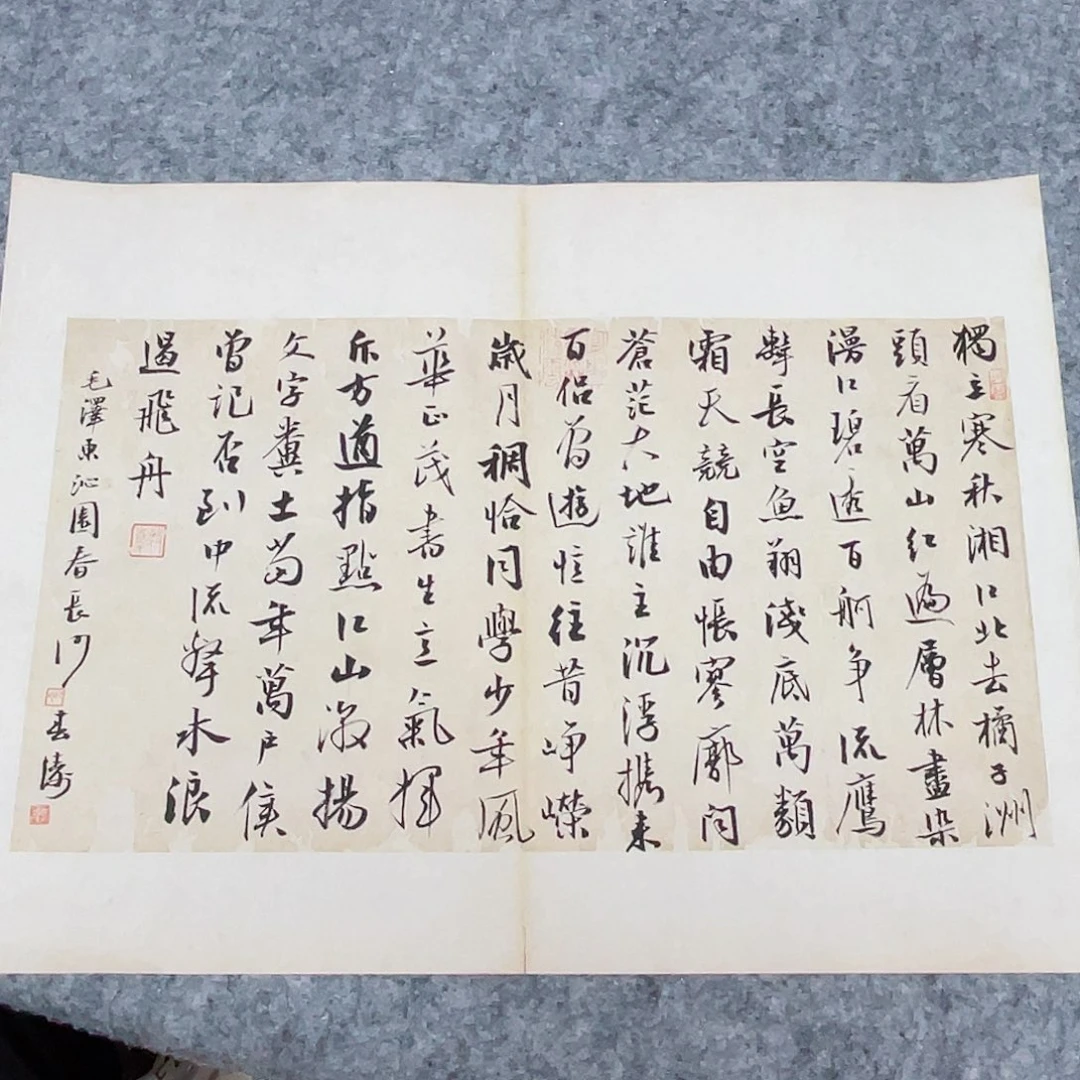 獨立寒秋湘江北去橘子洲
頭看萬山紅遍層林盡染
漫江碧透百舸争流鷹
擊長空魚翔淺底萬類
霜天競自由悵寥廓問
蒼茫大地誰主沉浮攜來
百侣曾遊憶往昔崢嶸
歲月稠恰同學少年風
華正茂書生意氣揮
斥方遒指點江山激揚
文字糞土當年萬户侯
曾記否到中流擊水浪
遏飛舟
毛澤東沁園春長沙